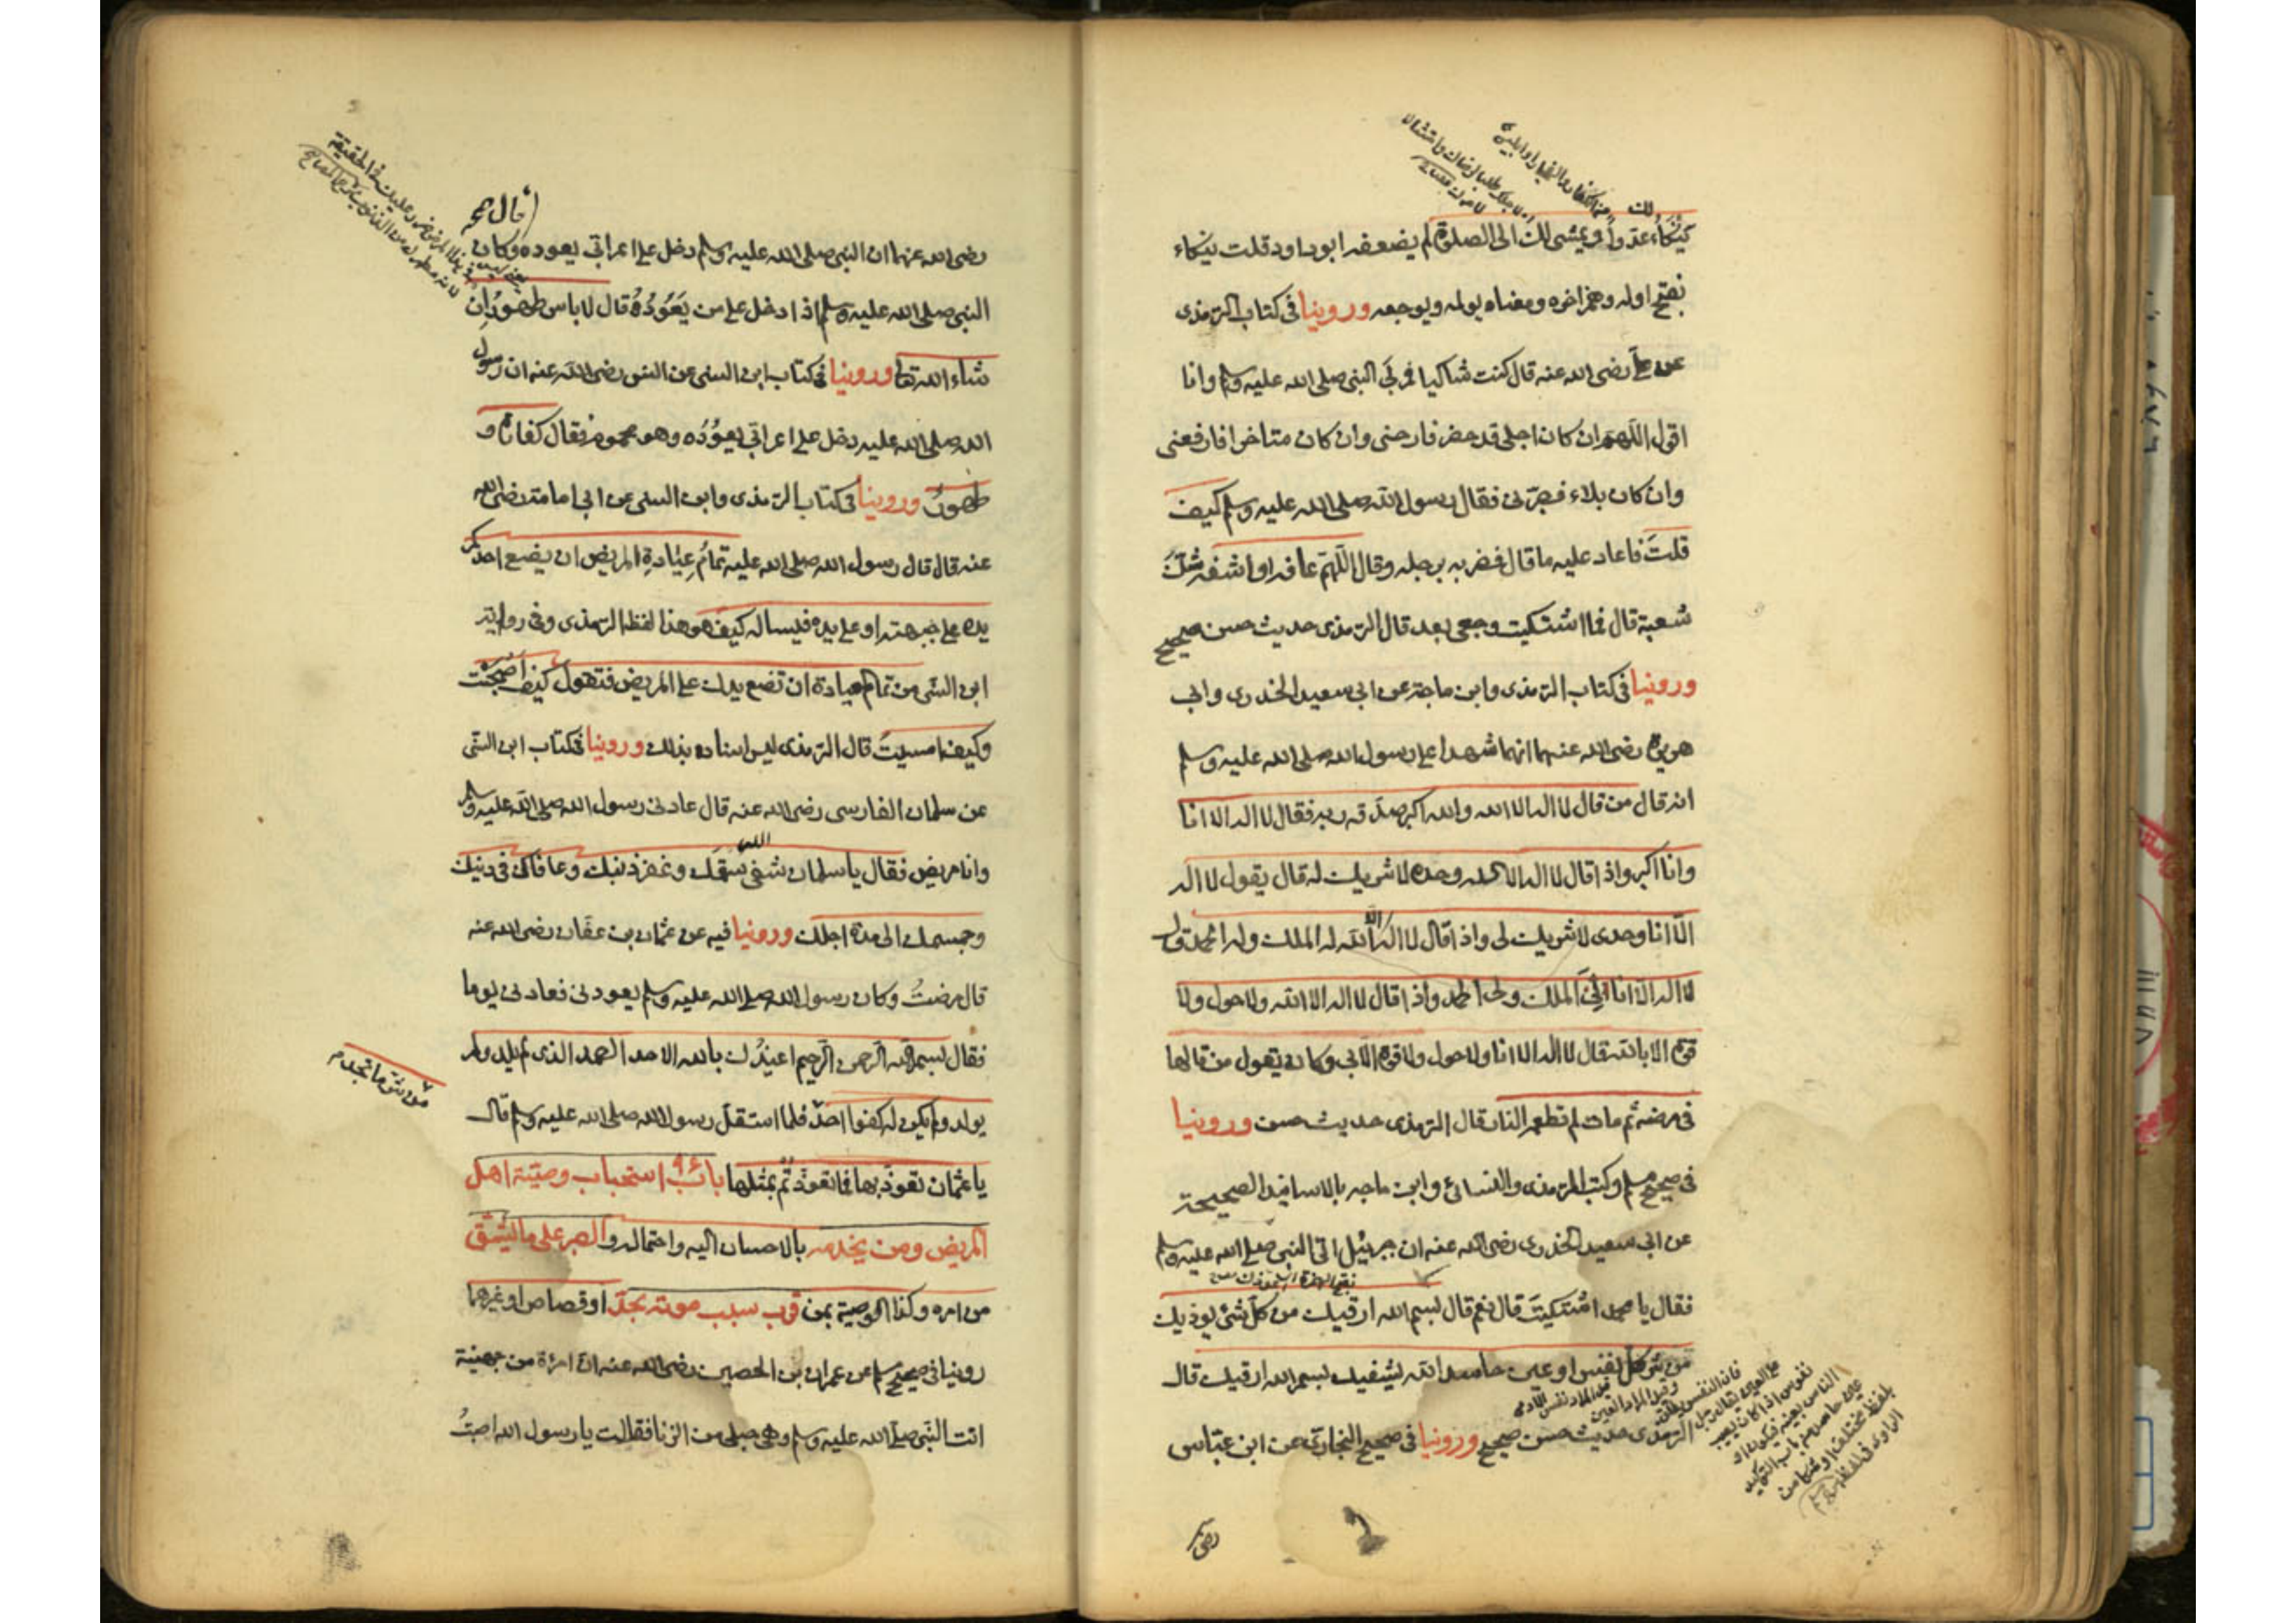 لك
ينكاء عدوا او يمشي لك الى الصلوة لم يضعفه ابو داود قلت ينكاء
بفتح اوله وهمز اخره ومعناه يولمه ويوجعه وروينا في كتاب الترمذي
عن علي رضى الله عنه قال كنت شاكيا فمر بي النبي صلى الله عليه وسلم وانا
اقول اللهم ان كان اجلي قد حضر فارحنى وان كان متاخرا فارفعنى
وان كان بلاء فصبرنى فقال رسول الله صلى الله عليه وسلم كيف
قلت فاعاد عليه ما قال فضربه برجله وقال اللهم عافه او اشفه شك
شعبة قال فما اشتكيت وجعى بعد قال الترمذى حديث حسن صحيح
وروينا في كتاب الترمذى وابن ماجة عن ابي سعيد الخدرى وابي
هريرة رضى الله عنهما انهما شهدا على رسول الله صلى الله عليه وسلم
انه قال من قال لا اله الا الله والله اكبر صدقه ربه فقال لا اله الا انا
وانا اكبر واذا قال لا اله الا الله وحده لا شريك له قال يقول لا اله
الا انا وحدى لا شريك لى واذا قال لا اله الا الله له الملك وله الحمد قال
لا اله الا انا لي الملك ولى الحمد واذا قال لا اله الا الله ولا حول ولا
قوة الا بالله قال لا اله الا انا ولا حول ولا قوة الا بي وكان يقول من قالها
في مرضه ثم مات لم تطعمه النار قال الترمذى حديث حسن وروينا
في صحيح مسلم وكتب الترمذى والنسائ وابن ماجه بالاسانيد الصحيحة
عن ابي سعيد الخدرى رضى الله عنه ان جبرئيل اتى النبي صلى الله عليه وسلم
فقال يا محمد اشتكيت قال نعم قال بسم الله ارقيك من كل شئ يوذيك
من شر كل نفس او عين حاسد الله يشفيك بسم الله ارقيك قال
الترمذى حديث حسن صحيح وروينا في صحيح البخارى عن ابن عباس
رضى
رضى الله عنهما ان النبي صلى الله عليه وسلم دخل على اعرابي يعوده وكان
النبي صلى الله عليه وسلم اذا دخل على من يعوده قال لا باس طهور ان
شاء الله تعا وروينا في كتاب ابن السنى عن انس رضى الله عنه ان رسول
الله صلى الله عليه دخل على اعرابي يعوده وهو محموم فقال كفارة و
طهور وروينا في كتاب الترمذى وابن السنى عن ابي امامة رضى الله
عنه قال قال رسول الله صلى الله عليه تمام عيادة المريض ان يضع احدكم
يده على جبهته او على يده فيساله كيف هو هذا لفظ الترمذى وفى رواية
ابن السنى من تمام عيادة ان تضع يدك على المريض فتقول كيف اصبحت
وكيف امسيت قال الترمذى ليس اسناده بذلك وروينا في كتاب ابن السنى
عن سلمان الفارسى رضى الله عنه قال عادنى رسول الله صلى الله عليه وسلم
وانا مريض فقال يا سلمان شفى الله سقمك وغفر ذنبك وعافاك في دينك
وجسمك الى مدة اجلك وروينا فيه عن عثمان بن عفان رضى الله عنه
قال مرضت وكان رسول الله صلى الله عليه وسلم يعودنى فعادنى يوما
فقال بسم الله الرحمن الرحيم اعيذك بالله الاحد الصمد الذى لم يلد ولم
من شر ما تجد
يولد ولم يكن له كفوا احد فلما استقل رسول الله صلى الله عليه وسلم قال
يا عثمان تعوذ بها فما تعوذ ثم بمثلها باب استحباب وصية اهل
المريض ومن يخدمه بالاحسان اليه واحتماله والصبر على ما يشق
من امره وكذا الوصية بمن قرب سبب موته بحد او قصاص او غيرهما
روينا في صحيح مسلم عن عمران بن الحصين رضى الله عنه ان امرءة من جهينة
اتت النبي صلى الله عليه وسلم وهى حبلى من الزنا فقالت يا رسول الله اصبت